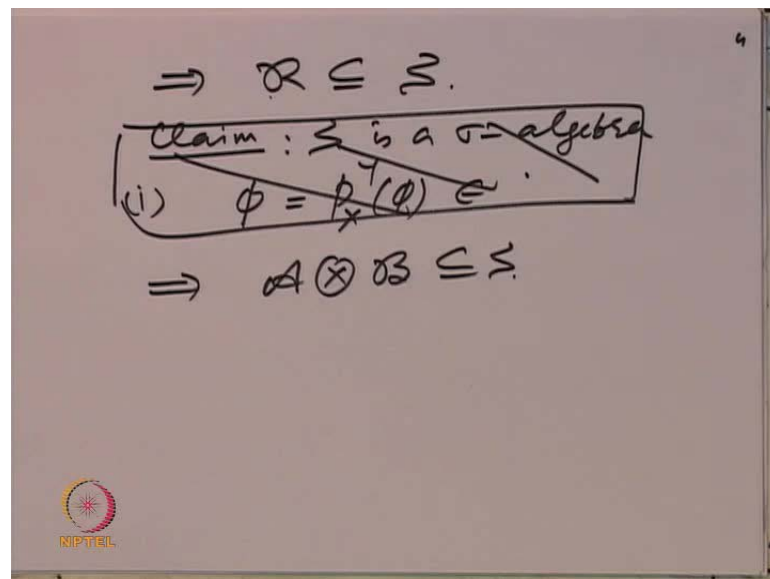 4
⟹ R ⊆ S.
Claim : S is a σ-algebra
(i) ϕ = p_X^{-1}(ϕ) ∈ .
⟹ A ⊗ B ⊆ S.
NPTEL